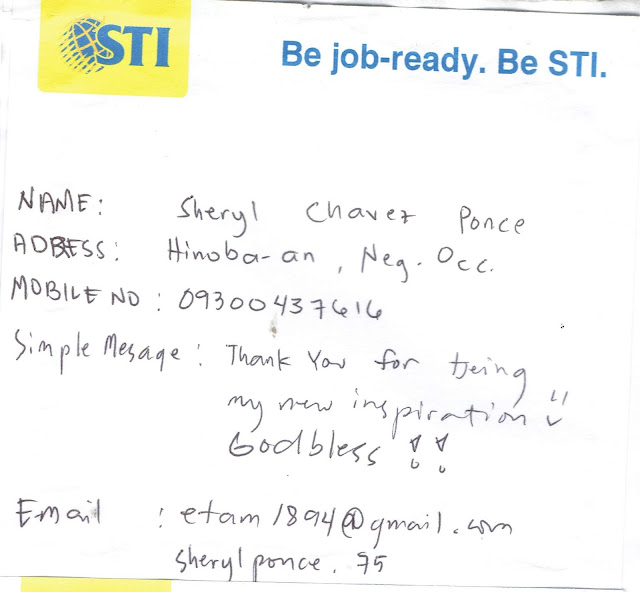 STI
Be job-ready. Be STI.
NAME: Sheryl Chavez Ponce
ADDRESS: Hinoba-an, Neg. Occ.
MOBILE NO: 09300437616
Simple Mesage: Thank You for being
my new inspiration
Godbless !!
Email : etam1894@gmail.com
sherylponce.75